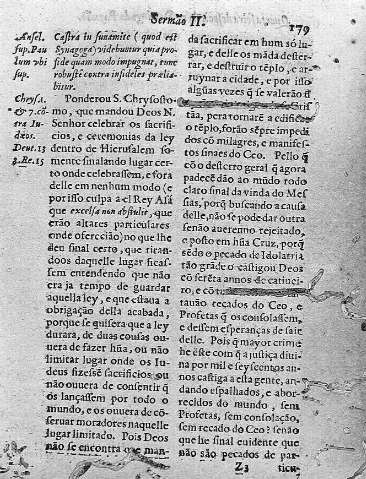 Sermão II.
179
Ansel.
sup. Pau
lum vbi
sup.
Castra in sunamite (quod est
Synagoga) videbuntur quia pro-
fide quam modo impugnat, tunc
robustè contra infideles prælia-
bitur.
Chryso.
&
tra Iu-
dæos.
Deut.13
Ponderou S. Chrysosto-
mo, que mandou Deos N.
Senhor celebrar os sacrifi-
cios, e ceremonias da ley
dentro de Hierusalem so-
mente sinalando lugar cer-
to onde celebrassem, e fora
delle em nenhum modo (e
por isso culpa a el Rey Asá
que excelsa non abstulit, que
erão altares particulares
onde oferecião) no que lhe
deu sinal certo, que tiran-
doos daquelle lugar ficas-
sem entendendo que não
era ja tempo de guardar
aquella ley, e que estaua a
obrigação della acabada,
porque se quisera que a ley
durara, de duas cousas ou-
uera de fazer hũa, ou não
limitar lugar onde os Iu-
deus fizessẽ sacrificios ou
não ouuera de consentir q̃
os lançassem por todo o
mundo, e os ouuera de cõ-
seruar moradores naquelle
lugar limitado. Pois Deos
não se encontra que man-
da sacrificar em hum só lu-
gar, e delle os mãda dester-
rar, e destruir o tẽplo, e ar-
ruynar a cidade, e por isso
algũas vezes q̃ se valerão
tãa, pera tornarẽ a edificar
o tẽplo, forão sẽpre impedi
dos cõ milagres, e manifes-
tos sinaes do Ceo. Pello q̃
cõ o desterro geral q̃ agora
padecẽ dão ao mũdo todo
claro sinal da vinda do Mes
sias, porq̃ buscando a causa
delle, não se pode dar outra
senão auerẽno rejeitado,
e posto em hũa Cruz, porq̃
sẽdo o pecado de Idolatria
tão grãde o castigou Deos
cõ setẽta annos de catiuei-
ro, e cõ
tauão recados do Ceo, e
Profetas q̃ os consolassem,
e dessem esperanças de sair
delle. Pois q̃ mayor crime
he este com q̃ a justiça diui-
na por mil e seyscentos an-
nos castiga a esta gente, an-
dando espalhados, e abor-
recidos do mundo, sem
Profetas, sem consolação,
sem recado do Ceo? senão
que he final euidente que
não são pecados de par-
Z3
ticu-